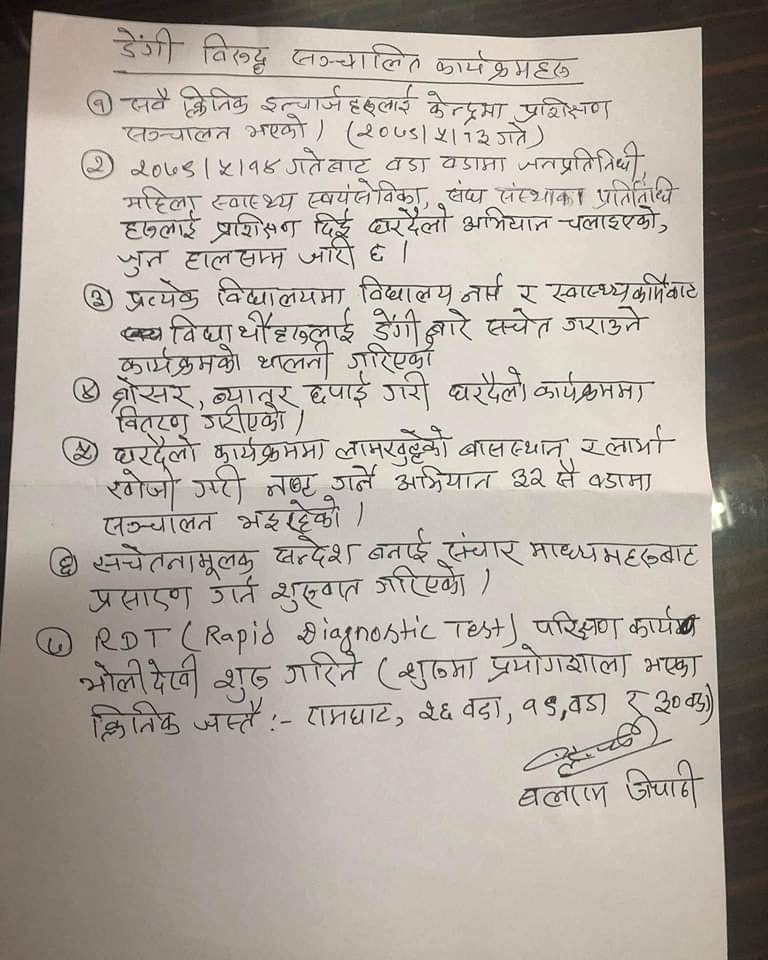 डेंगी विरुद्ध सञ्चालित कार्यक्रमहरू
१ सवै क्लिनिक इन्चार्जहरूलाई केन्द्रमा प्रशिक्षण
सञ्चालन भएको । (२०७५।५।१३ गते)
२ २०७५।५।१४ गतेबाट वडा वडामा जनप्रतिनिधी
महिला स्वास्थ्य स्वयंसेविका, संघ संस्थाका प्रतिनिधि
हरूलाई प्रशिक्षण दिई घरदैलो अभियान चलाइएको,
जुन हालसम्म जारी छ ।
३ प्रत्येक विद्यालयमा विद्यालय नर्स र स्वास्थ्यकर्मीबाट
विद्यार्थीहरूलाई डेंगी बारे सचेत गराउने
कार्यक्रमको थालनी गरिएको
४ ब्रोसर, ब्यानर छपाई गरी घरदैलो कार्यक्रममा
वितरण गरीएको ।
५ घरदैलो कार्यक्रममा लामखुट्टेको बासस्थान र लार्भा
खोजी गरी नष्ट गर्ने अभियान ३२ सै वडामा
सञ्चालन भइरहेको ।
६ सचेतनामूलक सन्देश बनाई संचार माध्यमहरूबाट
प्रसारण गर्न शुरूवात गरिएको ।
७ RDT (Rapid Diagnostic Test) परिक्षण कार्यक्रम
भोली देखी शुरू गरिने (शुरूमा प्रयोगशाला भएका
क्लिनिक जस्तै :- रामघाट, २६ वडा, १९, वडा र ३० वडा)
बलराम त्रिपाठी